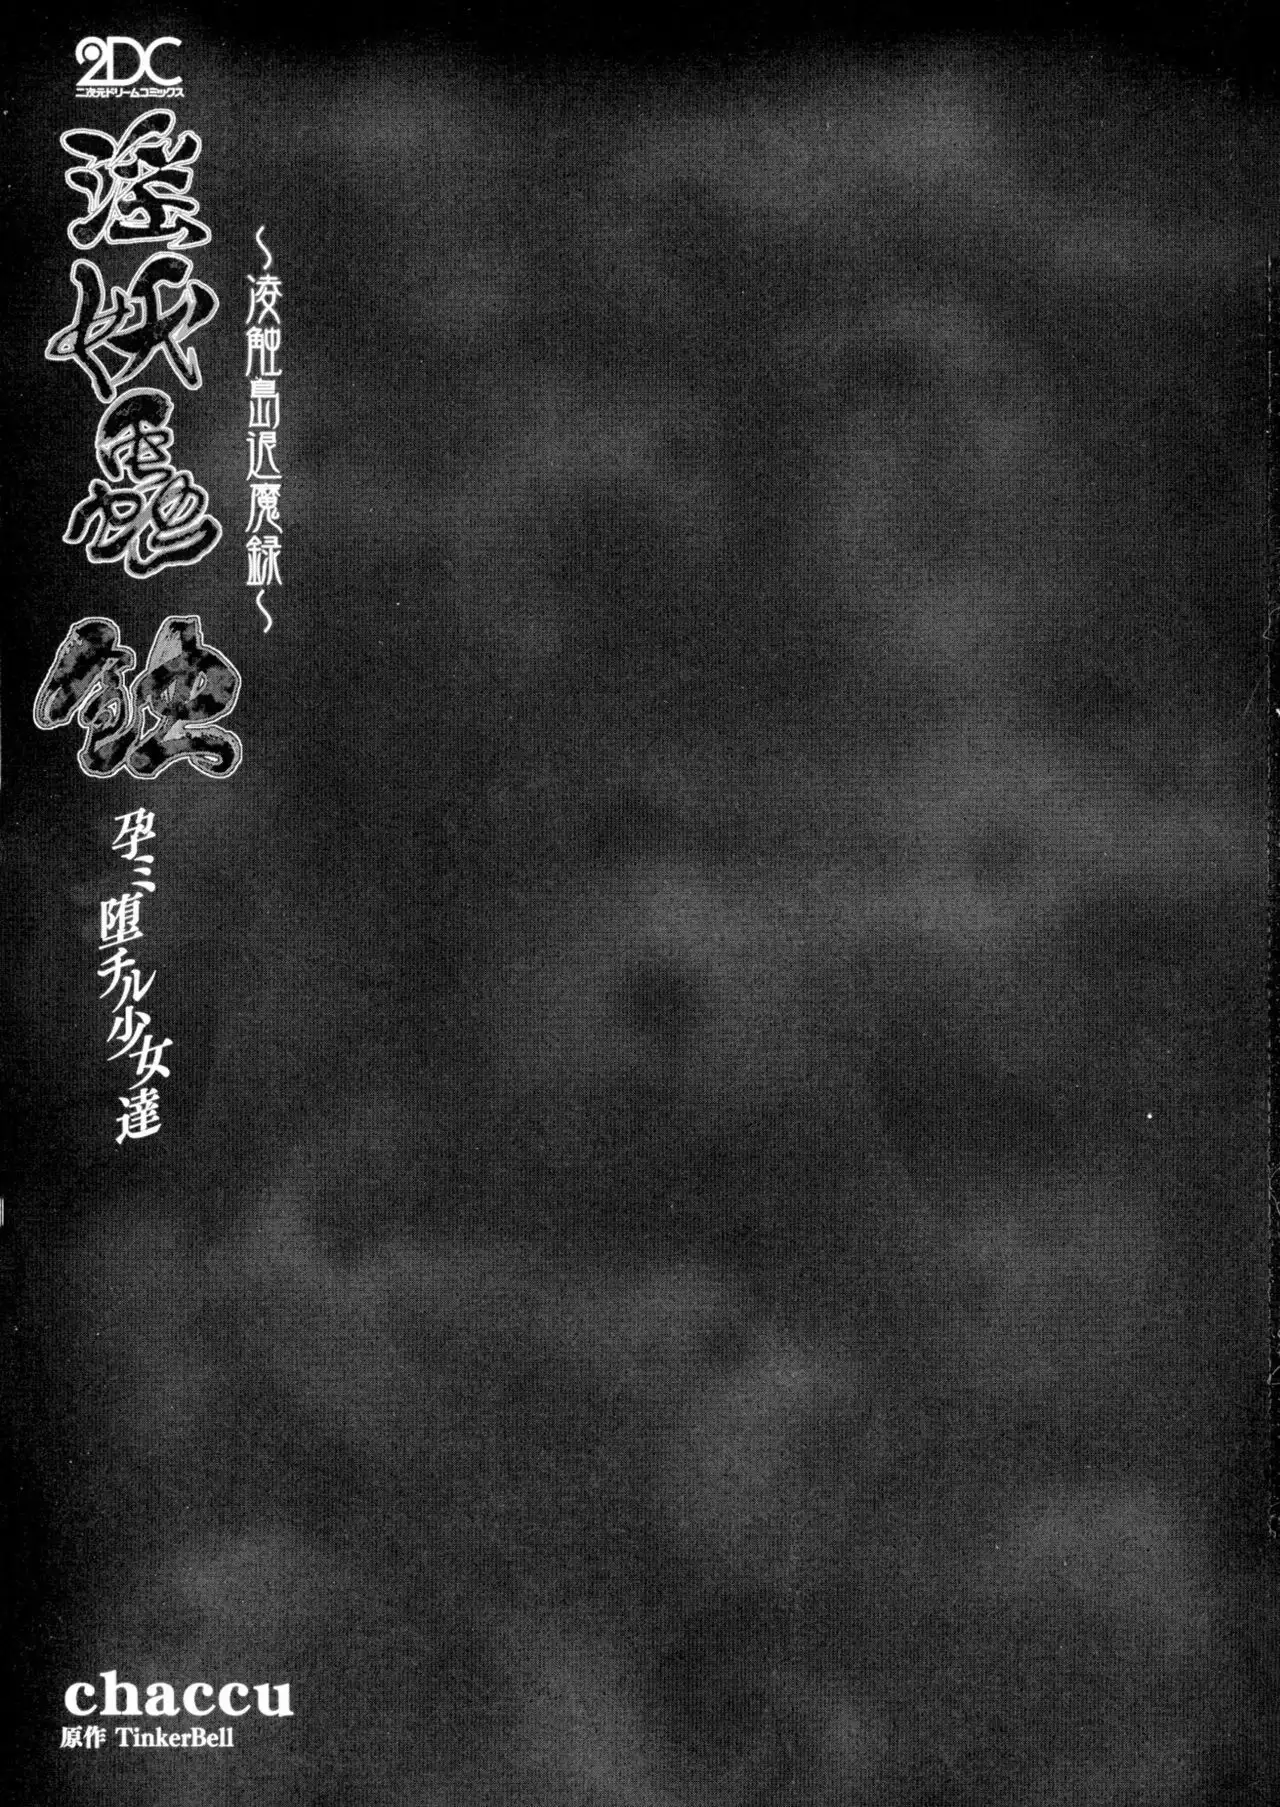 2DC
二次元ドリームコミックス
淫妖蟲 蝕
～凌触島退魔録～
孕ミ堕チル少女達
chaccu
原作 TinkerBell